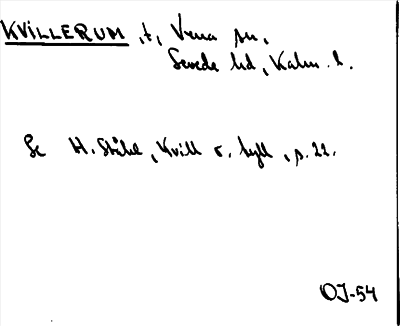 KVILLERUM, t, Vena sn,
Sevede hd, Kalm. l.
Se H. Ståhl, Kvill o. hyll, s. 22.
OJ-54